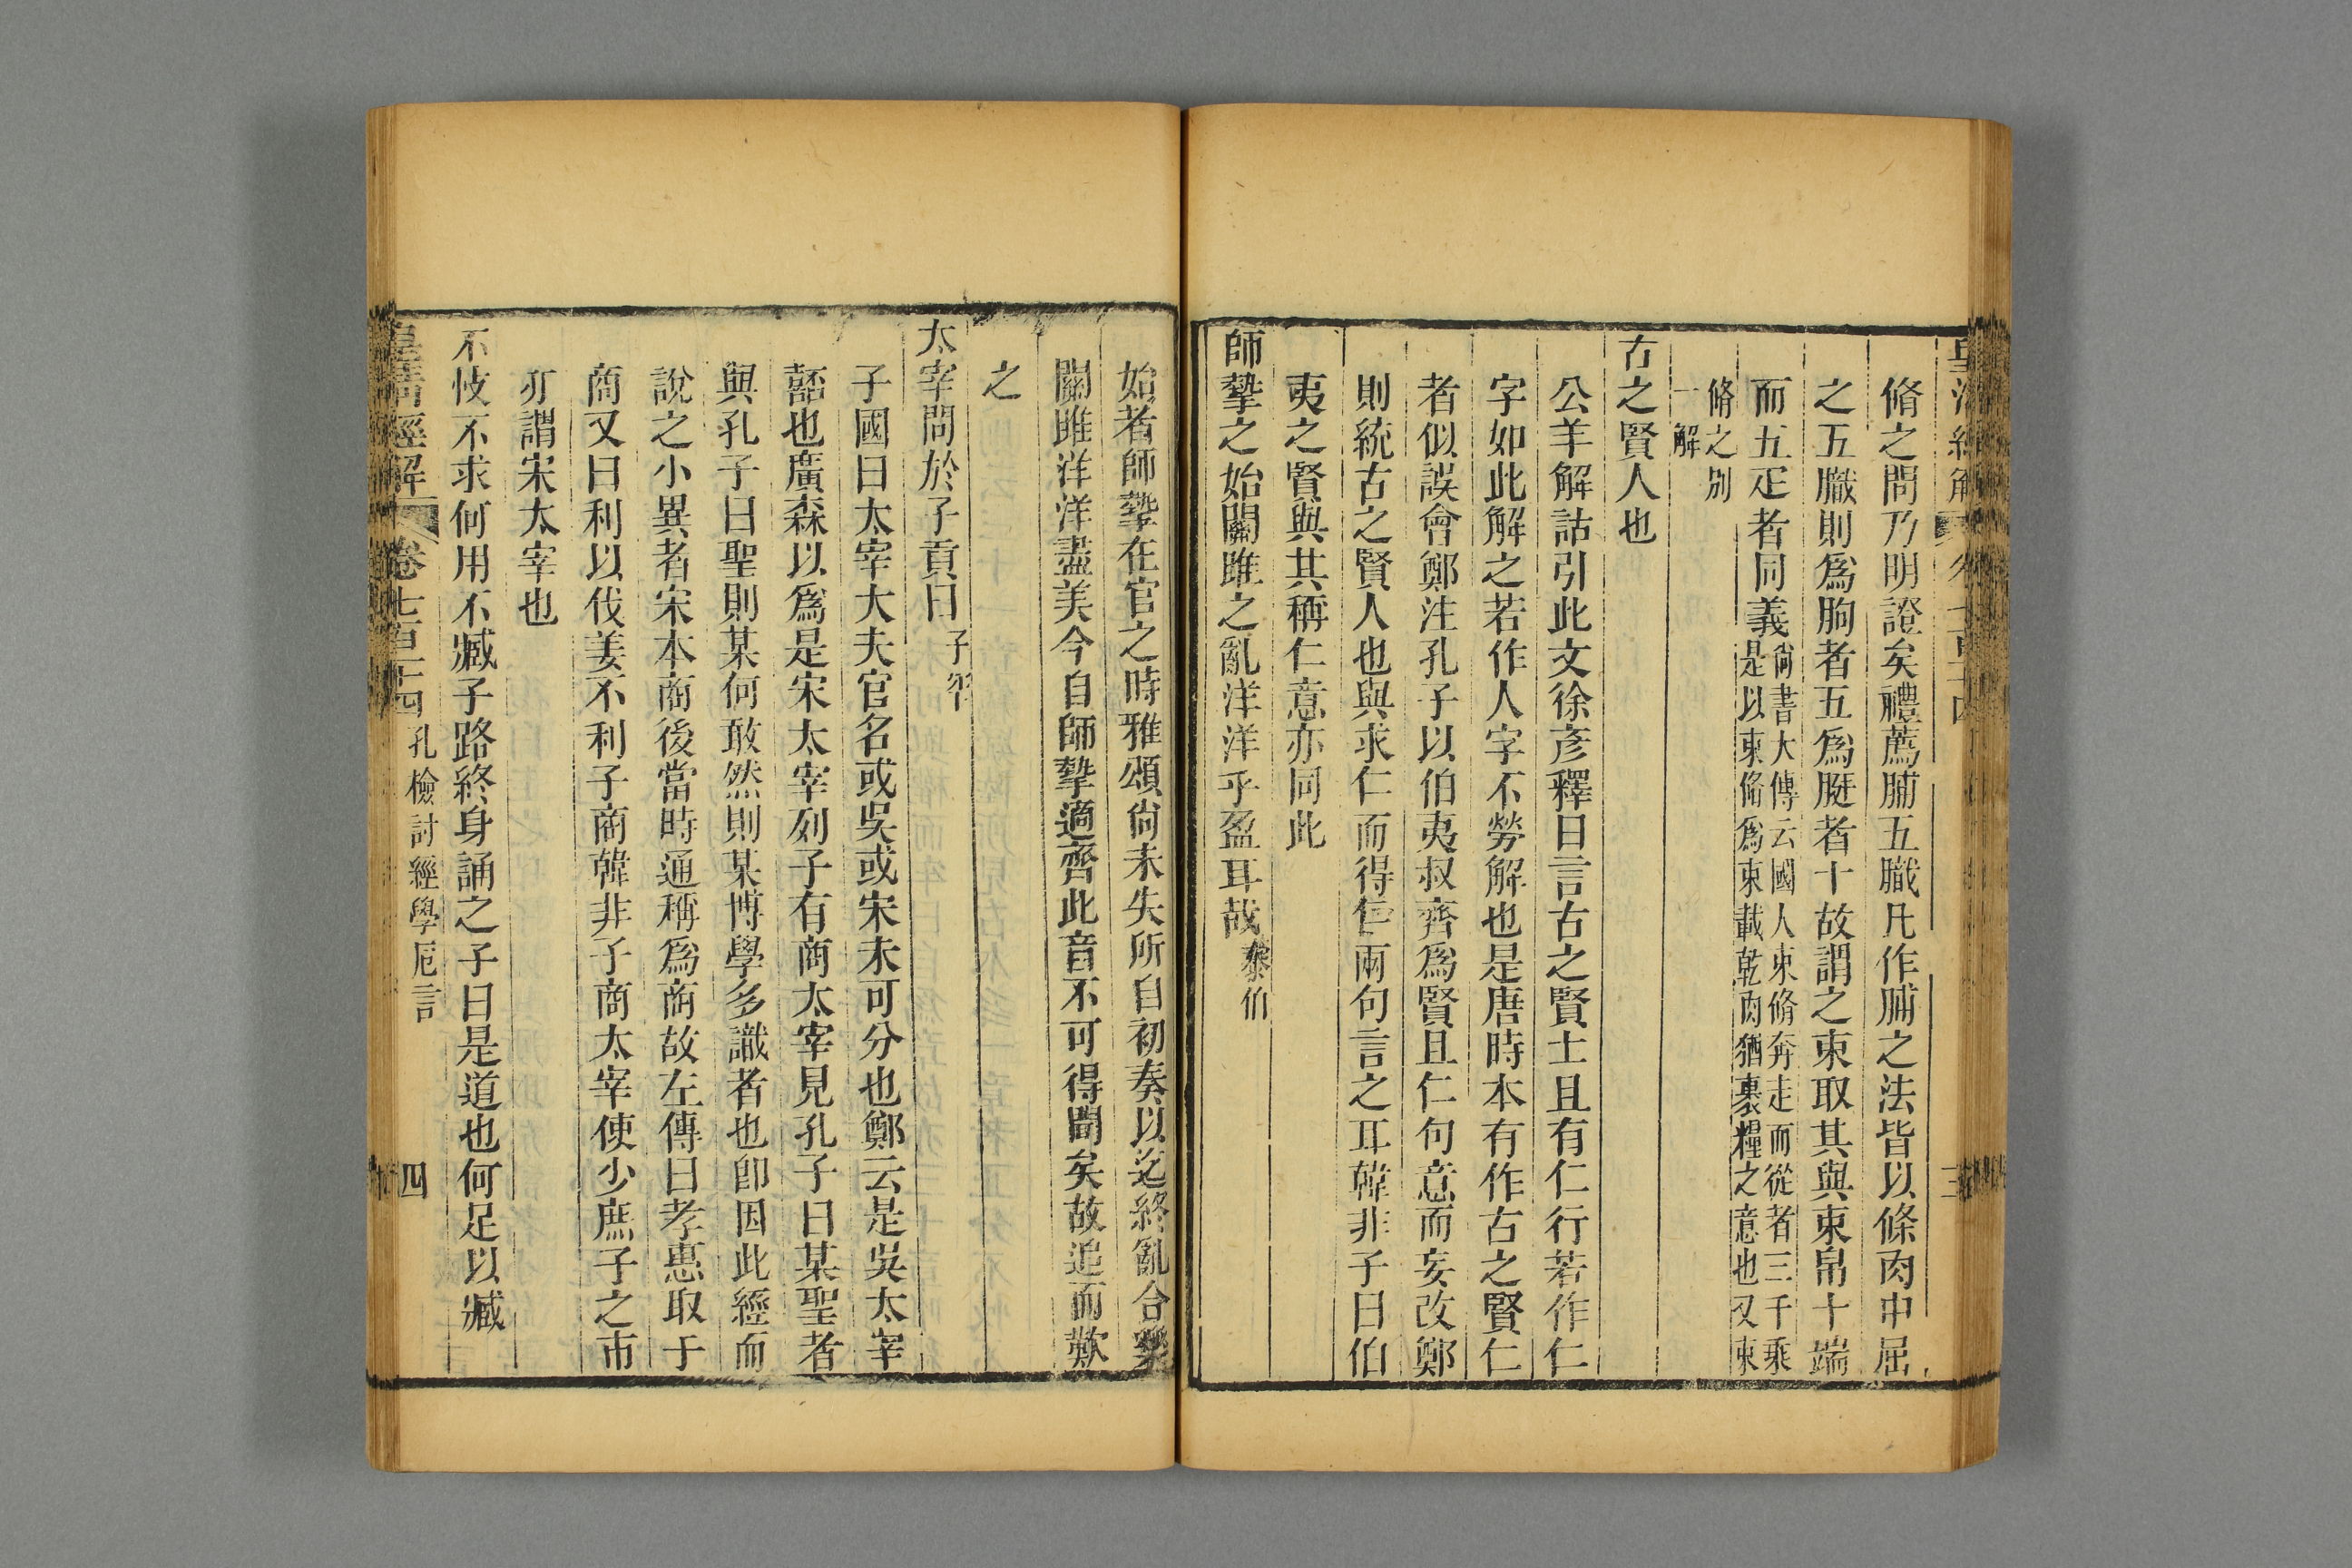 脩之問乃明證矣禮薦脯五膱凡作脯之法皆以條肉中屈
之五膱則爲朐者五爲脡者十故謂之束取其與束帛十端
而五疋者同義尙書大傳云國人束脩奔走而從者三千乘
是以束脩爲束載乾肉猶裹糧之意也又束
脩之別
一解
古之賢人也
公羊解詁引此文徐彥釋曰言古之賢士且有仁行若作仁
字如此解之若作人字不勞解也是唐時本有作古之賢仁
者似誤會鄭注孔子以伯夷叔齊爲賢且仁句意而妄改鄭
則統古之賢人也與求仁而得仁兩句言之耳韓非子曰伯
夷之賢與其稱仁意亦同此
師摯之始關雎之亂洋洋乎盈耳哉泰伯
始者師摯在官之時雅頌尙未失所自初奏以迄終亂合樂
關雎洋洋盡美今自師摯適齊此音不可得聞矣故追而歎
之
太宰問於子貢曰子罕
子國曰太宰大夫官名或吳或宋未可分也鄭云是吳太宰
嚭也廣森以爲是宋太宰列子有商太宰見孔子曰某聖者
與孔子曰聖則某何敢然則某博學多識者也卽因此經而
說之小異者宋本商後當時通稱爲商故左傳曰孝惠取于
商又曰利以伐姜不利子商韓非子商太宰使少庶子之市
亦謂宋太宰也
不忮不求何用不臧子路終身誦之子曰是道也何足以臧
皇清經解 卷七百十四 孔檢討經學卮言
四